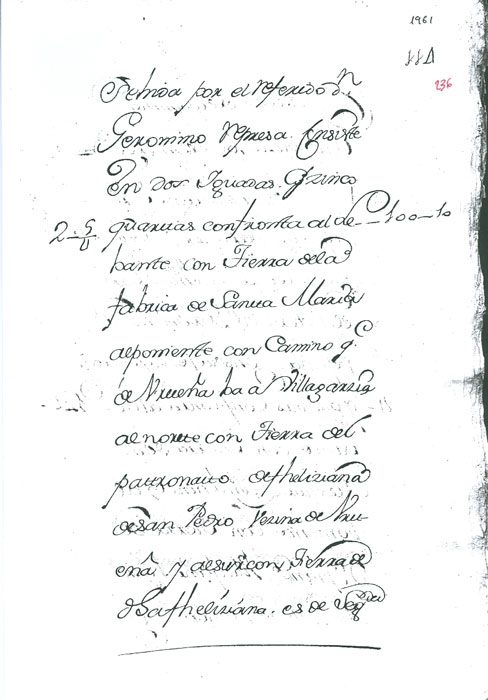 1961
111
236
por el referido dn
Geronimo represa. Consiste
En dos Iguadas. Y Zinco
2-5/U quartas confronta al le C-100-10
bante con Tierra dela
fabrica de Santta Maria
alponiente con Camino q.e
de Vrueña ba a Villagarzia
al nortte con Tierra del
pattronatto de theliziana
desan Pedro Vezina de Vru-
eña y alsur con Tierra de
theliziana. es de seg.da